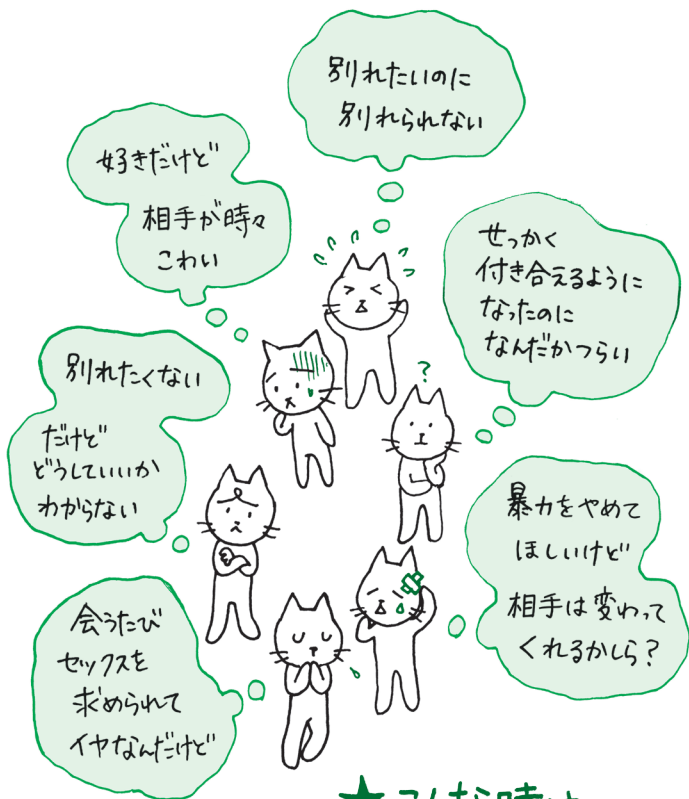 別れたいのに
別れられない
好きだけど
相手が時々
こわい
せっかく
付き合えるように
なったのに
なんだかつらい
?
別れたくない
だけど
どうしていいか
わからない
暴力をやめて
ほしいけど
相手は変わって
くれるかしら?
会うたび
セックスを
求められて
イヤなんだけど